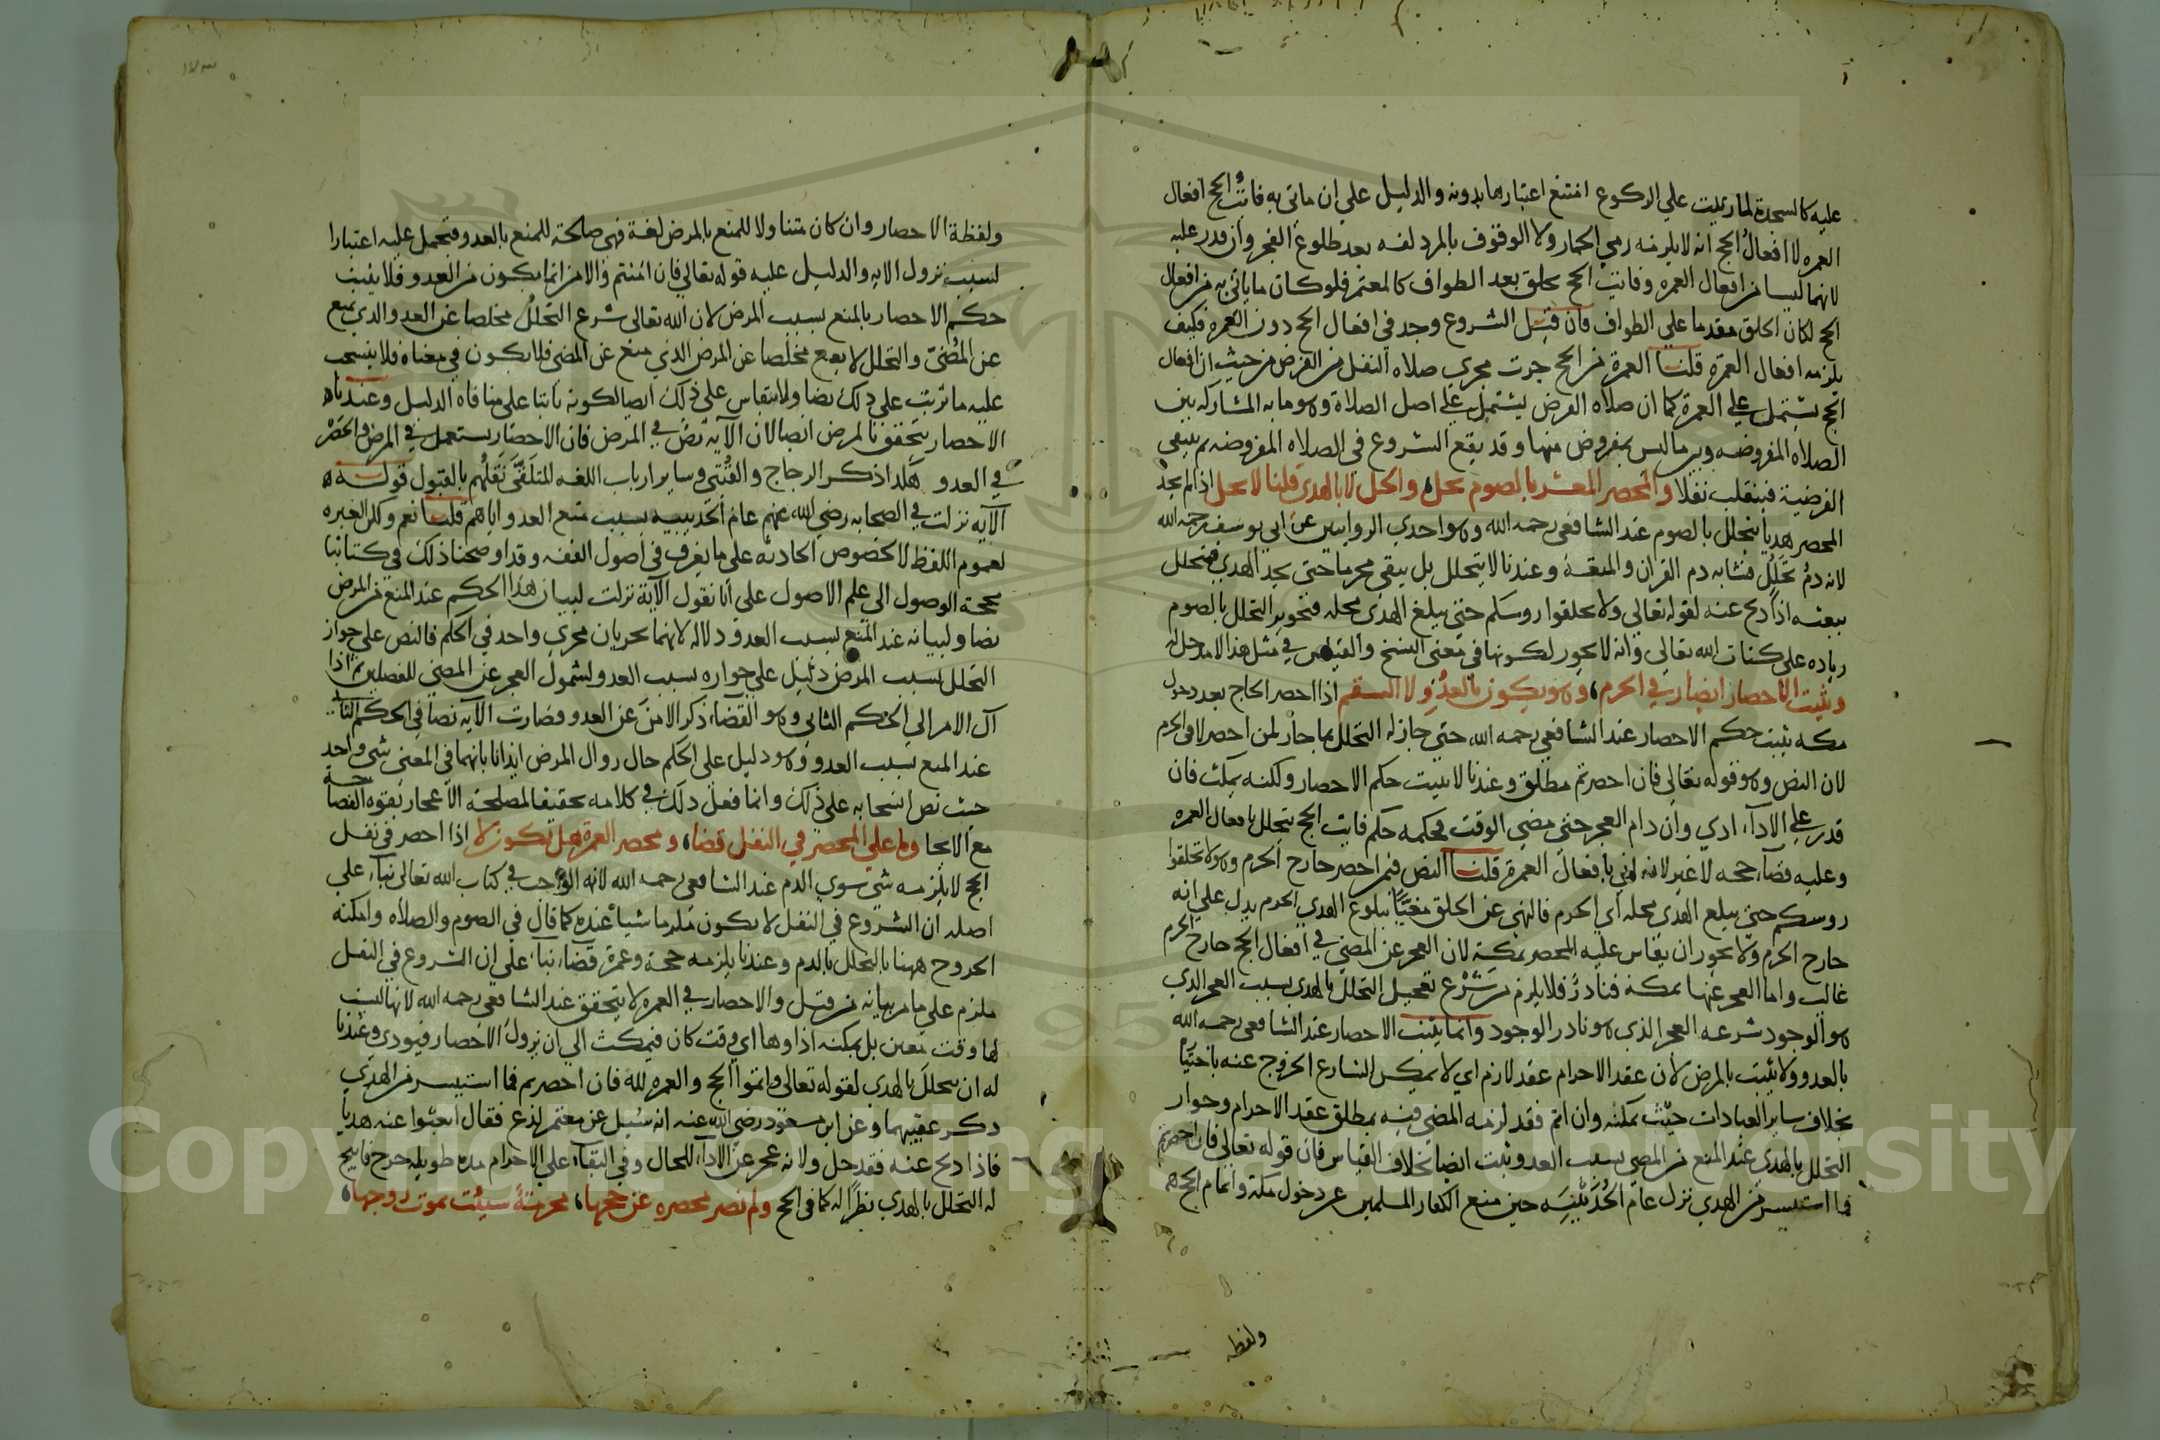 عليه كالسجدة لما ترتبت علي الركوع امتنع اعتبارها بدونه والدليل علي ان ماتى به فائت الحج افعال
العمره لا افعال الحج انه لا يلزمه رمي الجمار ولا الوقوف بالمزدلفه بعد طلوع الفجر وان قدر عليه
لانهما ليسا من افعال العمره وفائت الحج يحلق بعد الطواف كالمعتمر فلو كان ما ياتي به من افعال
الحج لكان الحلق مقدما علي الطواف فان قيل الشروع وجد في افعال الحج دون العمرة فكيف
يلزمه افعال العمرة قلنا العمرة من الحج جرت مجري صلاه النفل من الفرض من حيث ان افعال
الحج يشتمل علي العمرة كما ان صلاه الفرض يشتمل علي اصل الصلاة وهو ما به المشاركه بين
الصلاه المفروضه وبين ما ليس بمفروض منها وقد يقع الشروع في الصلاه المفروضه ثم ينتفي
الفرضية فينقلب نفلا والمحصر المعسر بالصوم يحل والحل لا بالهدي قلنا لا يحل اذا لم يجد
المحصر هديا يتحلل بالصوم عند الشافعي رحمه الله وهو احدي الروايتين عن ابي يوسف رحمه الله
لانه دم تحلل فشابه دم القران والمتعة وعندنا لا يتحلل بل يبقي محرما حتى يجد الهدي فيتحلل
ببعثه اذا ذبح عنه لقوله تعالي ولا تحلقوا روسكم حتي يبلغ الهدي محله فتجويز التحلل بالصوم
زياده علي كتاب الله تعالي وانه لا يجوز لكونها في معني النسخ والقياس في مثل هذا لا مدخل له
ويثبت الاحصار ايضا في الحرم وهو يكون بالعدو لا السقم اذا احصر الحاج بعد دخول
مكه يثبت حكم الاحصار عند الشافعي رحمه الله حتي جاز له التحلل بما جاز لمن احصر لا في الحرم
لان النص وهو قوله تعالي فان احصرتم مطلق وعندنا لا يثبت حكم الاحصار ولكنه يمكث فان
قدر علي الاداء ادي وان دام العجز حتي مضي الوقت فحكمه حكم فايت الحج يتحلل بافعال العمره
وعليه قضاء حجه لا غير لانه اوتي بافعال العمرة قلنا النص فيمن احصر خارج الحرم وهو ولا تحلقوا
روسكم حتي يبلغ الهدي محله اي الحرم فالنهي عن الحلق مغيا ببلوغ الهدي الحرم يدل علي انه
خارج الحرم ولا يجوز ان يقاس عليه المحصر بمكة لان العجز عن المضي في افعال الحج خارج الحرم
غالب واما العجز عنها بمكه فنادر فلا يلزم من شرع تعجيل التحلل بالهدي بسبب العجز الذي
هو الوجود شرعه العجز الذي هو نادر الوجود وانما يثبت الاحصار عند الشافعي رحمه الله
بالعدو ولا يثبت بالمرض لان عقد الاحرام عقد لازم اي لا يمكن الشارع الخروج عنه باختيا
بخلاف ساير العبادات حيث تمكنه وان اثم فقد لزمه المضي فيه بمطلق عقد الاحرام وجواز
التحلل بالهدي عند المنع من المضي بسبب العدو ثبت ايضا بخلاف القياس فان قوله تعالي فان احصرتم
فما استيسر من الهدي نزل عام الحديبية حين منع الكفار المسلمين عن دخول مكة واتمام الحج
ولفظة
ولفظة الاحصار وان كان متناولا للمنع بالمرض لغة فهي صالحة للمنع بالعدو فتحمل عليه اعتبارا
لسبب نزول الايه والدليل عليه قوله تعالي فان امنتم والامن انما يكون من العدو فلا يثبت
حكم الاحصار بالمنع بسبب المرض لان الله تعالى شرع التحلل مخلصا عن العدو الذي يمنع
عن المضي والتحلل لا يقع مخلصا عن المرض الذي منع عن المضي فلا يكون في معناه فلا ينسحب
عليه ما ترتب علي ذلك نصا ولا يقاس علي ذلك ايضا لكونه ثابتا علي منافاه الدليل وعندنا
الاحصار يتحقق بالمرض ايضا لان الآية نص في المرض فان الاحصار يستعمل في المرض والحصر
في العدو هكذا ذكر الزجاج والقتبي وساير ارباب اللغه المتلقى نقلهم بالقبول قوله
الآيه نزلت في الصحابه رضي الله عنهم عام الحديبيه بسبب منع العدو اياهم قلنا نعم ولكن العبره
لعموم اللفظ لا لخصوص الحادثه علي ما يعرف في اصول الفقه وقد اوضحنا ذلك في كتابنا
بحجة الوصول الي علم الاصول علي انا نقول الآية نزلت لبيان هذا الحكم عند المنع من المرض
نصا ولبيانه عند المنع بسبب العدو دلاله لانهما يجريان مجري واحد في الحكم فالنص علي جواز
التحلل بسبب المرض دليل علي جوازه بسبب العدو لشمول العجز عن المضي للفصلين ثم اذا
آل الامر الي الحكم الثاني وهو القضاء ذكر الامن عن العدو فصارت الآيه نصا في الحكم الثاني
عند المنع بسبب العدو وهو دليل علي الحكم حال زوال المرض ايذانا بانهما في المعني شي واحد
حيث نص اصحابه علي ذلك وانما فعل ذلك في كلامه تحقيقا لمصلحة الاعجاز بقوه الفصاحة
مع الايجاز وما علي المحصر في النفل قضاء ومحصر العمرة هل تكون لا اذا احصر في نفل
الحج لا يلزمه شي سوي الدم عند الشافعي رحمه الله لانه الواجب في كتاب الله تعالي بناء علي
اصله ان الشروع في النفل لا يكون ملزما شيا عنده كما قال في الصوم والصلاه وامكنه
الخروج ههنا بالتحلل بالدم وعندنا يلزمه حجة وعمرة قضاء بناء علي ان الشروع في النفل
ملزم علي ما مر بيانه من قبل والاحصار في العمره لا يتحقق عند الشافعي رحمه الله لانها ليست
لها وقت معين بل يمكنه اداوها اي وقت كان فيمكث الي ان يزول الاحصار فيودي وعندنا
له ان يتحلل بالهدي لقوله تعالي واتموا الحج والعمره لله فان احصرتم فما استيسر من الهدي
ذكر عقيبهما وعن ابن مسعود رضي الله عنه انه سئل عن معتمر لدغ فقال ابعثوا عنه هديا
فاذا ذبح عنه فقد حل ولانه عجز عن الاداء للحال وفي البقاء علي الاحرام مده طويله حرج فابيح
له التحلل بالهدي نظرا له كما في الحج ولم تصر محصره عن حجها محرمة سيئت بموت زوجها
Copyright © King Saud University